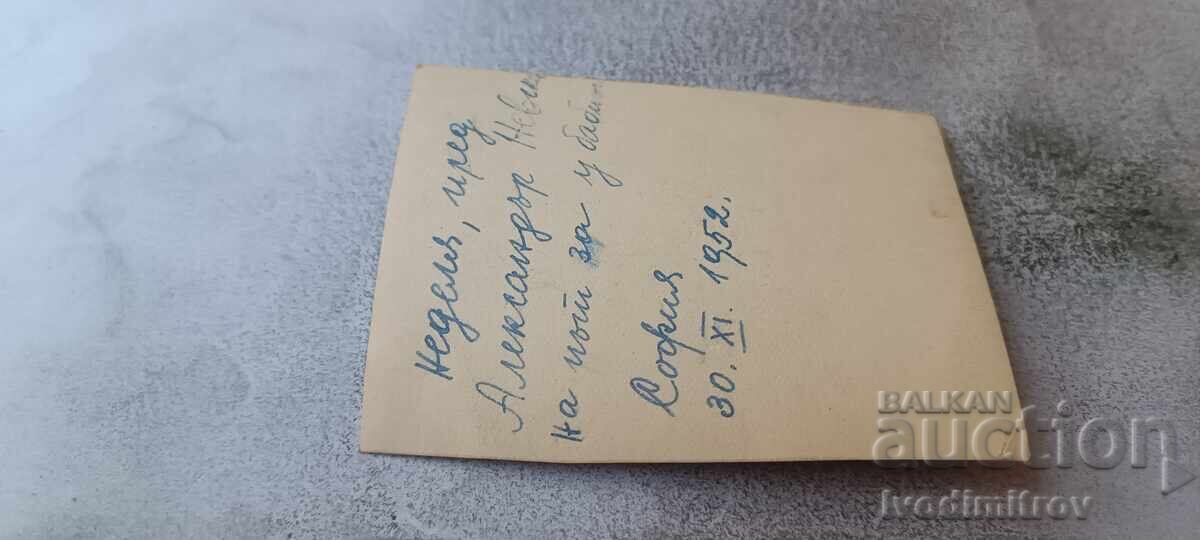 неделя, пред
Александър Невски
на път за у баба
София
30. XI. 1952.
BALKAN
auction
Ivodimitrov